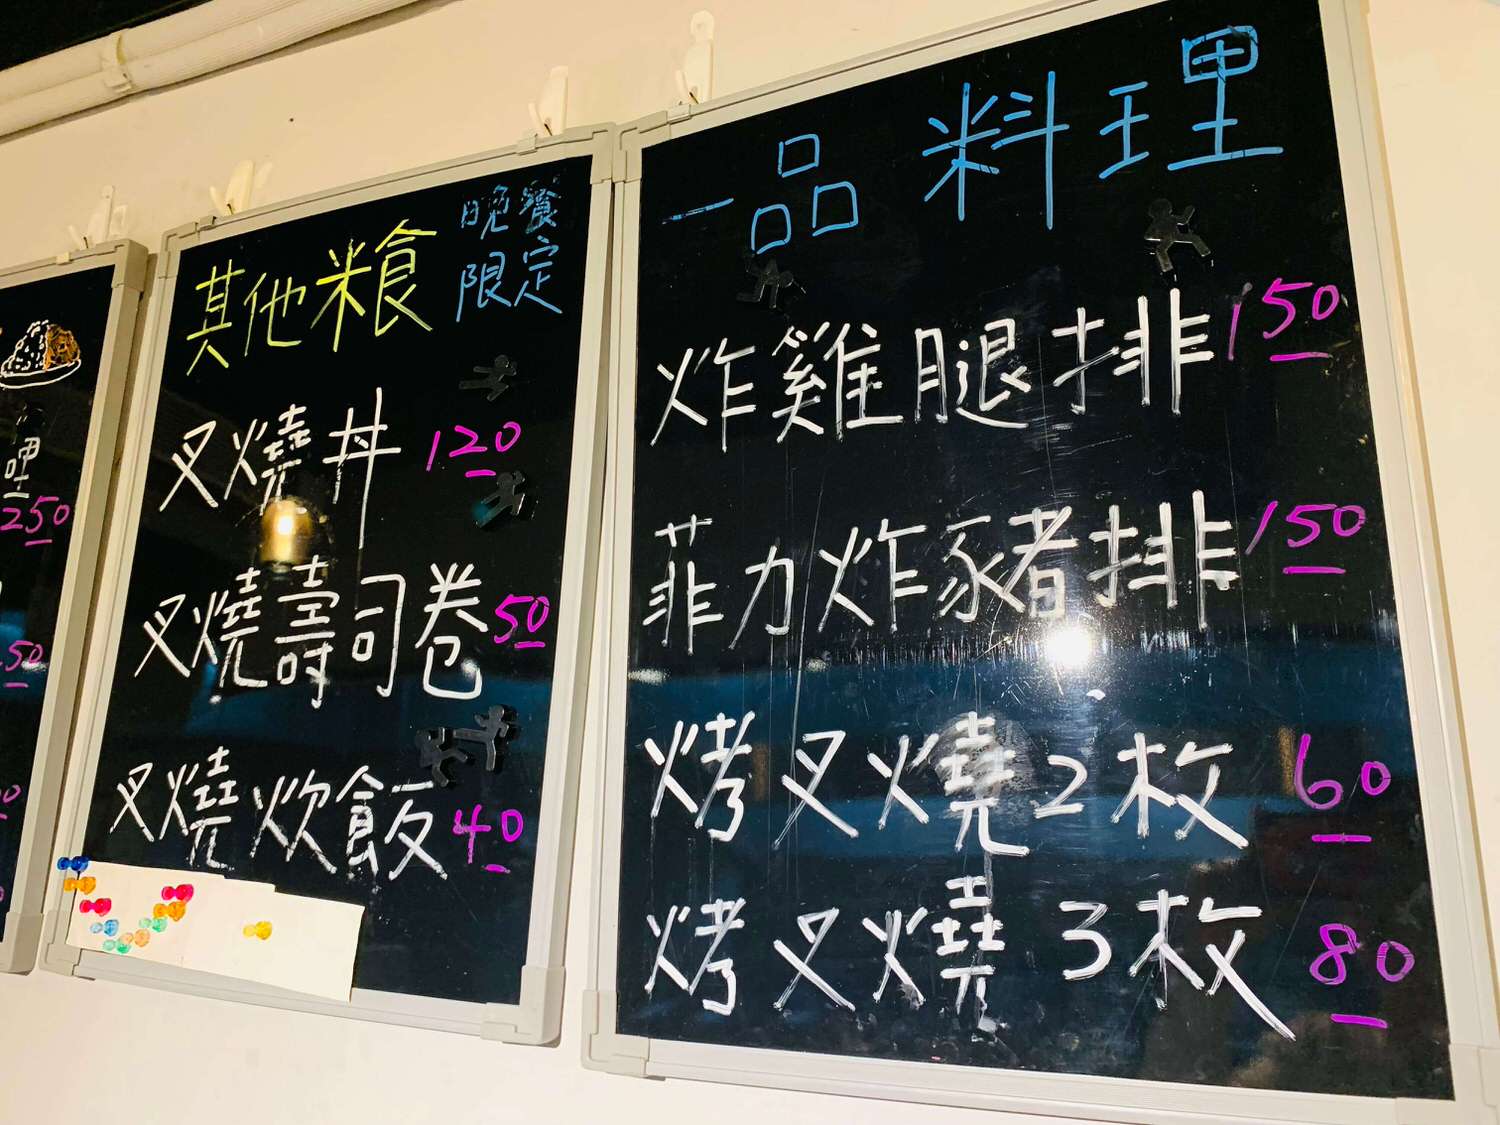 呷
250
50
其他糧食
晚餐
限定
叉燒丼 120
叉燒壽司卷 50
叉燒炊飯 40
一品料理
炸雞腿排 150
菲力炸豬排 150
烤叉燒2枚 60
烤叉燒3枚 80